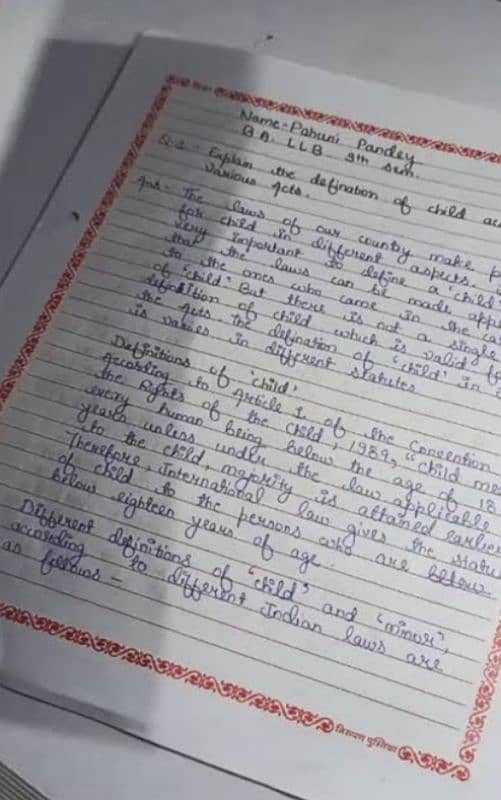 Name - Pahuni Pandey
B.A. LLB 9th sem.
Q.1 - Explain the defination of child acc
various Acts.
Ans - The laws of our country make p
for child in different aspects.
very important to define a 'child
that the laws can be made app
to the ones who came in the ca
of 'child'. But there is not a single
definition of child which is valid fr
the Acts. The defination of 'child' in
is varies in different statutes.
Definitions of 'child'
According to Article 1 of the Convention
the Rights of the Child, 1989, "Child me
every human being below the age of 18
years unless under the law applicable
to the child, majority is attained earlier
Therefore, International law gives the statu
of child to the persons who are below
below eighteen years of age.
Different definitions of 'child' and 'minor',
according to different Indian laws are
as follows -